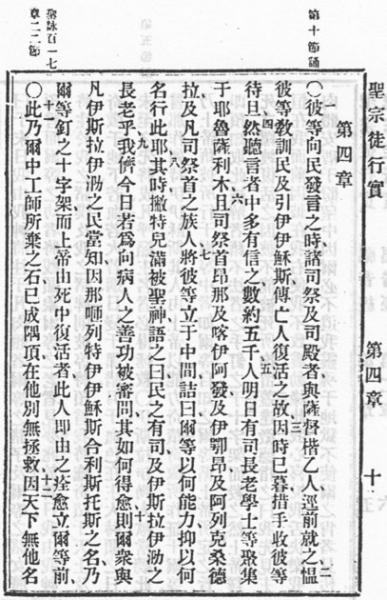 聖宗徒行實
第四章
十
第十節誦
聖詠百一七
章二二節
第四章
○彼等向民發言之時諸司祭及司殿者與薩督楷乙人逕前就之慍
二
彼等教訓民及引伊伊穌斯傳亡人復活之故因時已暮措手收彼等
三
待旦然聽言者中多有信之數約五千人明日有司長老學士等聚集
四
五
于耶魯薩利木且司祭首昂那及喀伊阿發及伊鄂昂及阿列克桑德
六
拉及凡司祭首之族人將彼等立于中間詰曰爾等以何能力抑以何
七
名行此耶其時撇特兒滿被聖神語之曰民之有司及伊斯拉伊泐之
八
長老乎我儕今日若為向病人之善功被審問其如何得愈則爾衆與
九
十
凡伊斯拉伊泐之民當知因那咂列特伊伊穌斯合利斯托斯之名乃
爾等釘之十字架而上帝由死中復活者此人即由之痊愈立爾等前
十一
○此乃爾中工師所棄之石已成隅頂在他別無拯救因天下無他名
十二